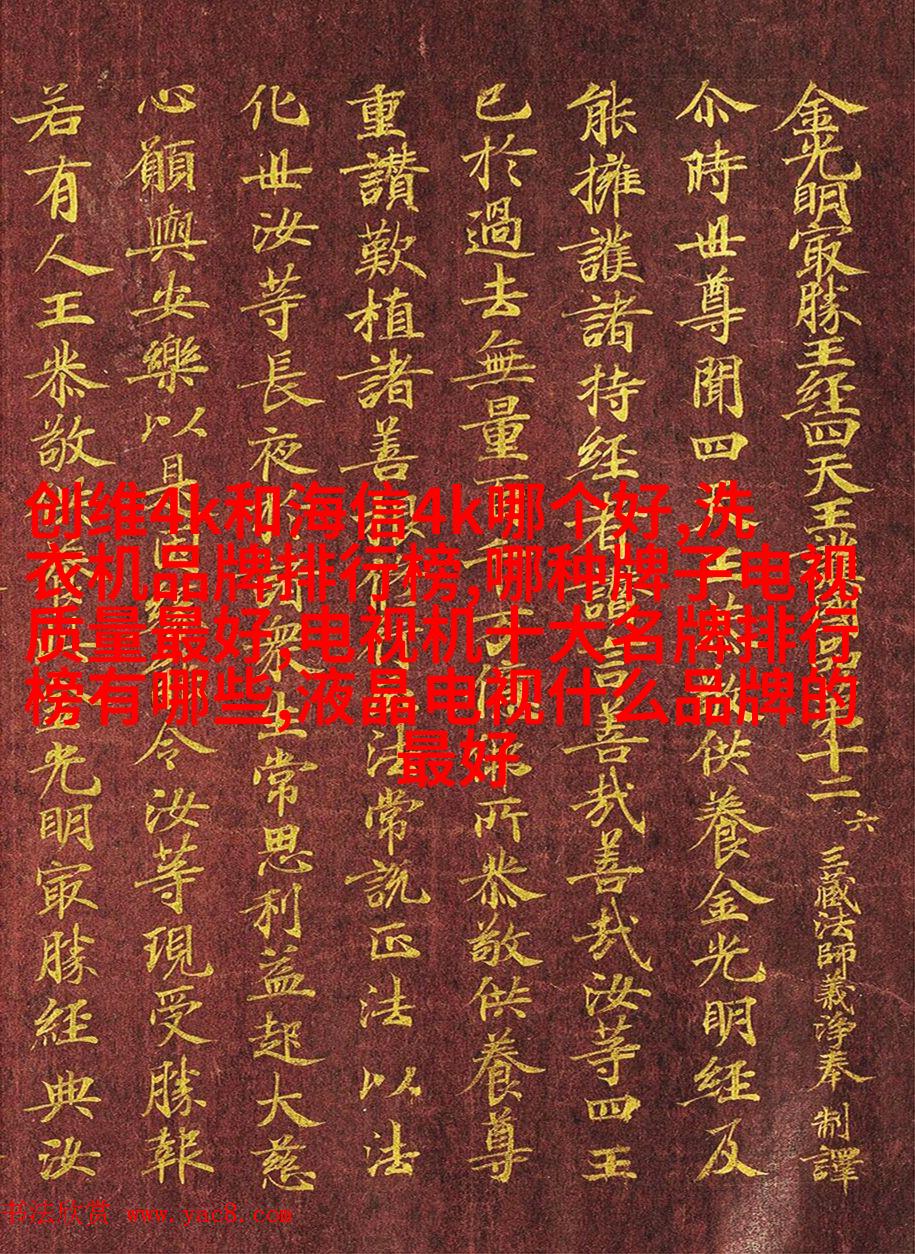 金光明冣勝王經四天王十二 六 三藏法師義淨奉 制譯
尒時世尊聞四供養金光明經及
能擁護諸持經者讚言善哉善哉汝等四王
已於過去無量所恭敬供養尊
重讚歎植諸善法常說正法以法
化世汝等長夜衆生常思利益起大慈
心願與安樂以是令汝等現受勝報
若有人王恭敬光明冣勝經典汝
创维4k和海信4k哪个好,洗
衣机品牌排行榜,哪种牌子电视
质量最好,电视机十大名牌排行
榜有哪些,液晶电视什么品牌的
最好
书法欣赏 www.yac8.com